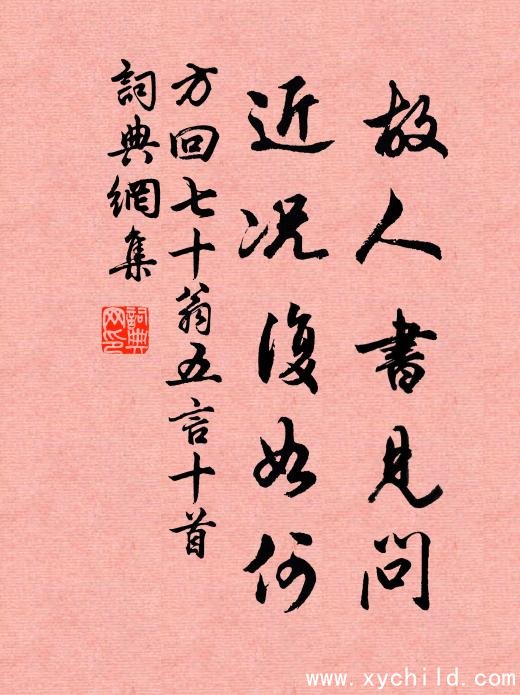 故人書見問
近况復如何
方回七十翁五言十首
詞典網集
詞典網印
www.xychild.com